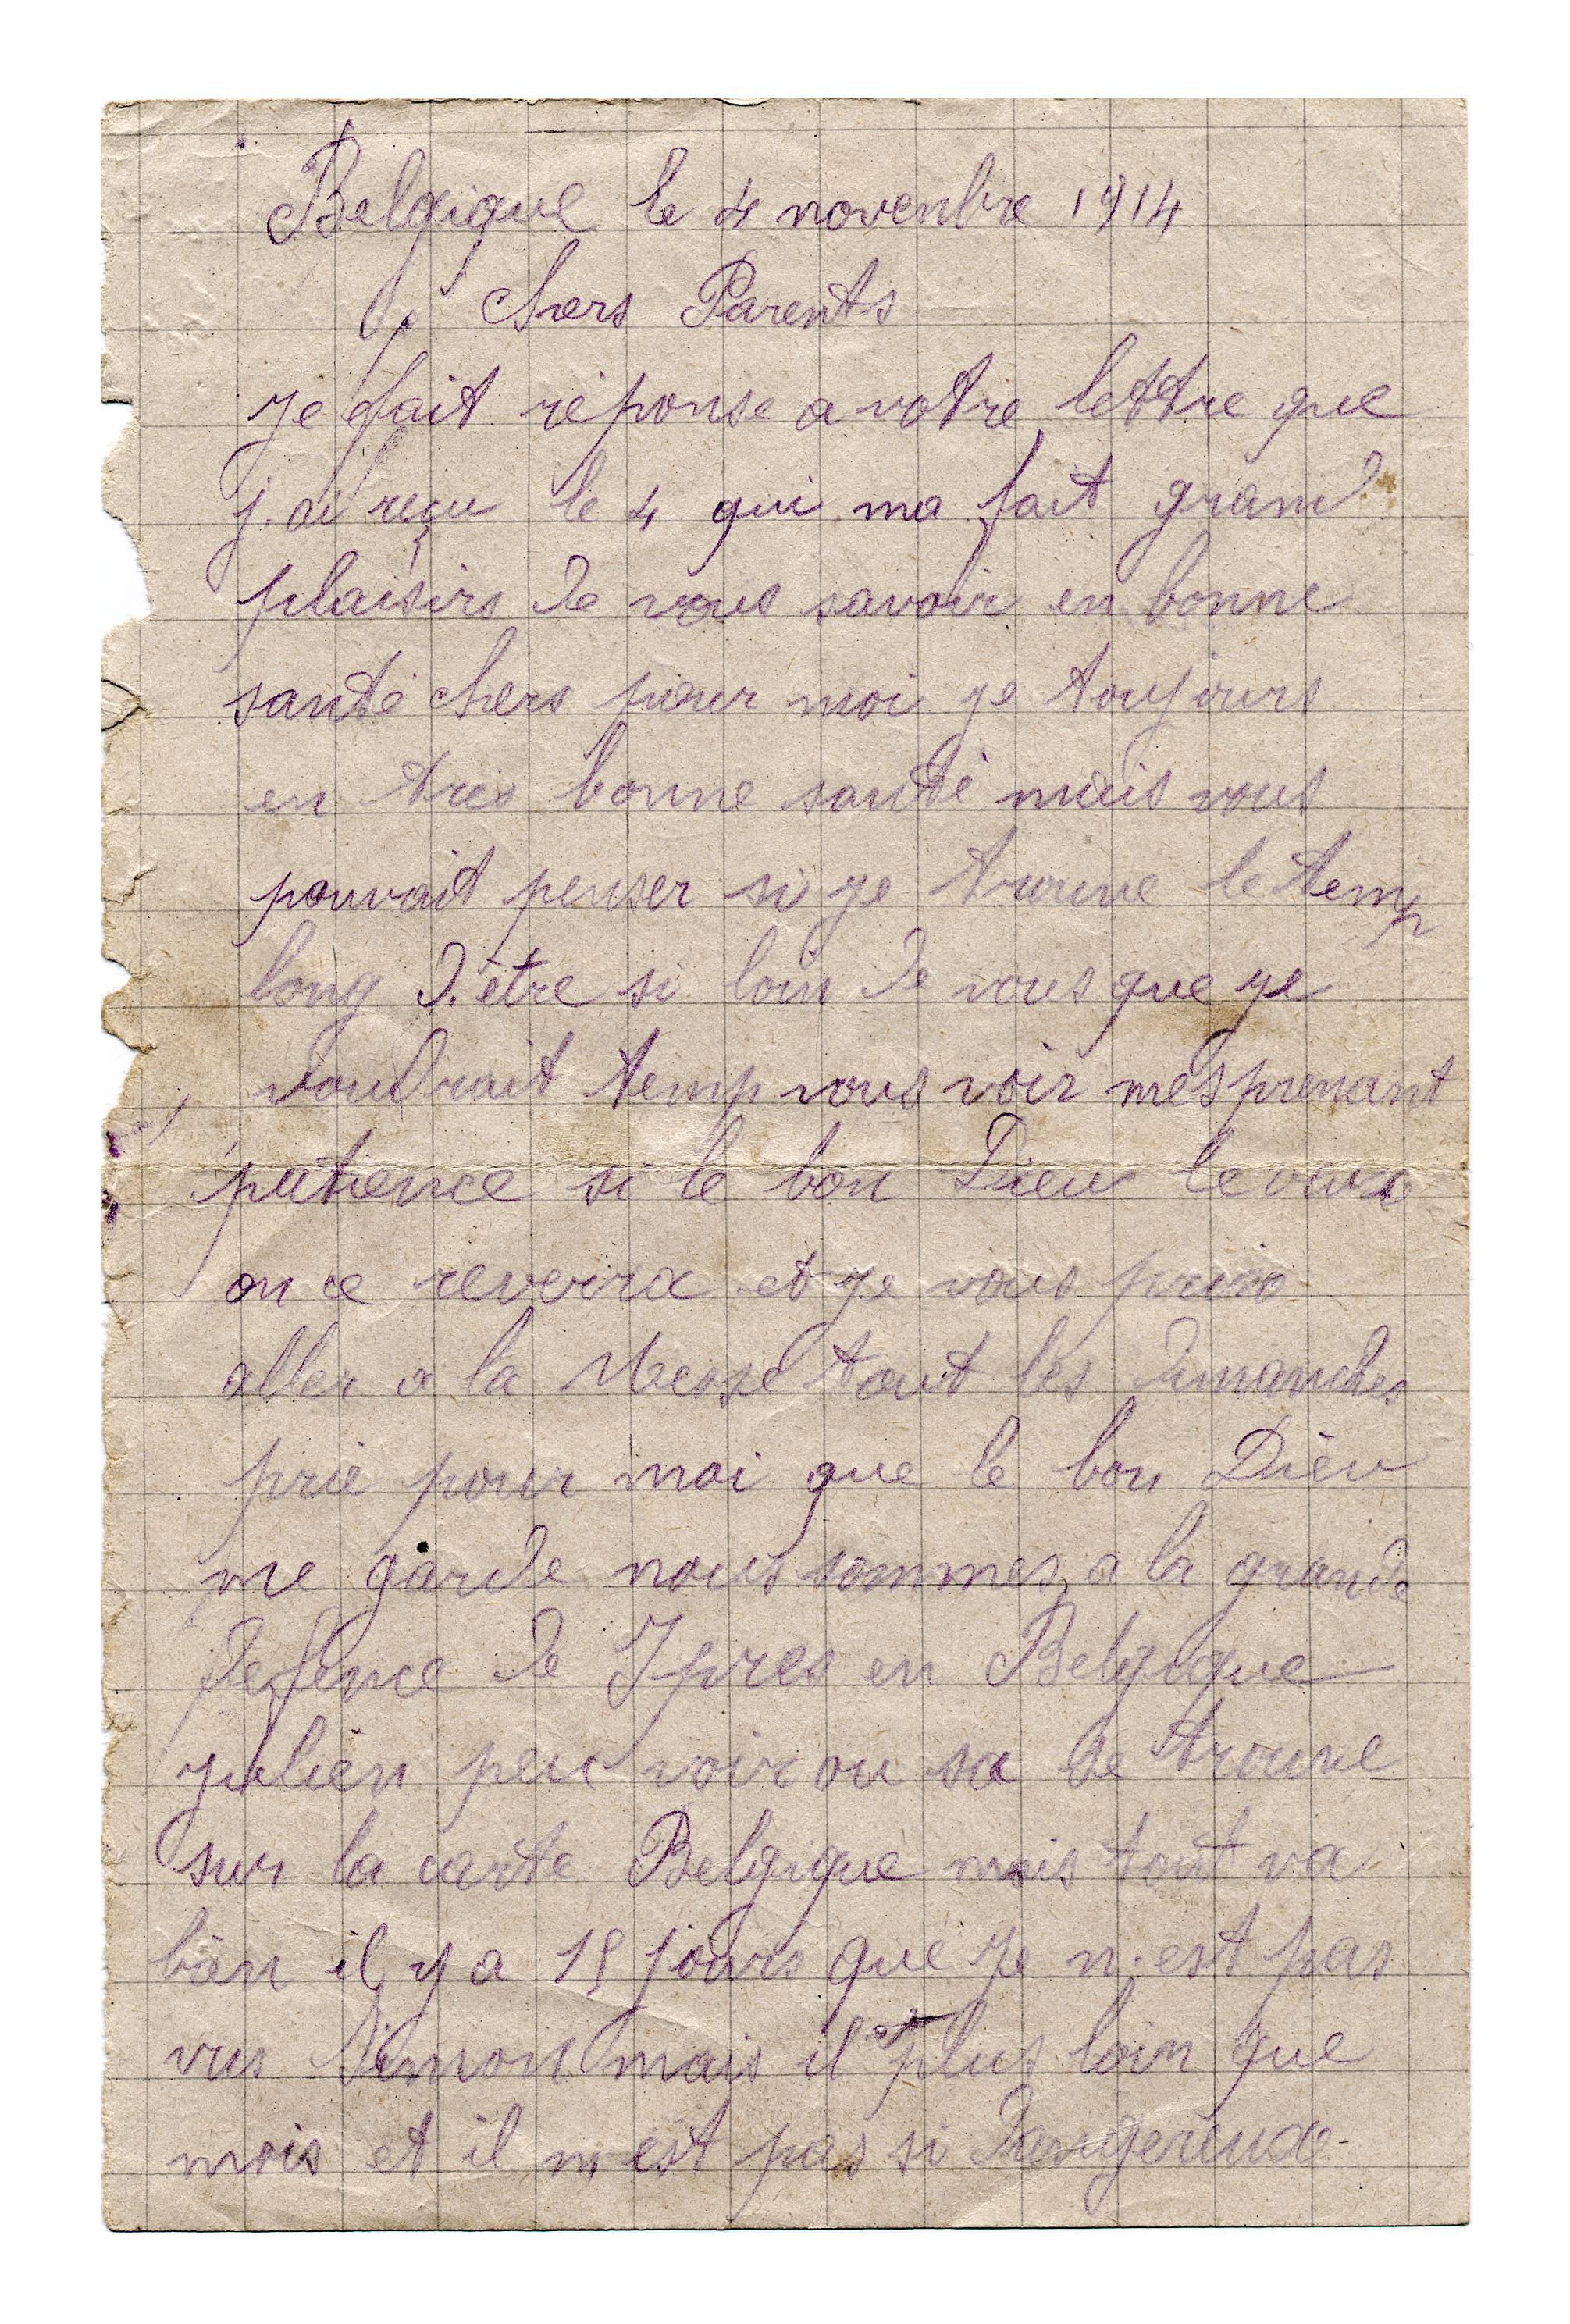 Belgique le 4 novenbre 1914
Chers Parents
Je fait réponse a votre lettre que
j.ai reçu le 4 qui ma fait grand
plaisirs de vous savoir en bonne
santé chers pour moi je toujours
en tres bonne santé mais vous
pouvait penser si je trouve le temp
long d.être si loin de vous que je
voudrait temp vous voir mes prenant
patience si le bon Dieu le veux
on ce reverra et je vous prie
aller a la Messe tout les dimanches
prie pour moi que le bon Dieu
me garde nous sommes a la grande
defence de Ypres en Belgique
julien peu voir ou sa se trouve
sur la carte Belgique mais tout va
bien il y a 15 jours que je n.est pas
vus Simon mais il est plus loin que
mois et il n est pas si dangereux